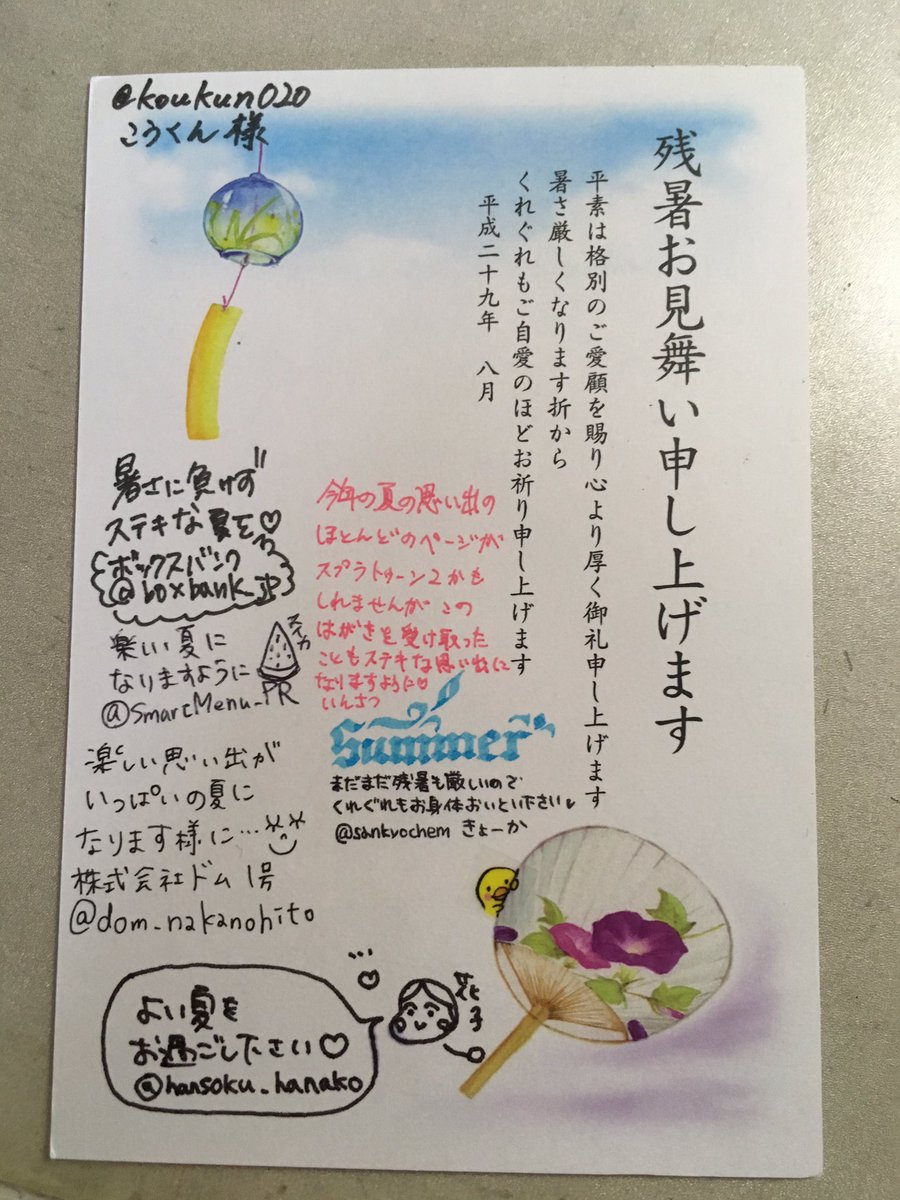 @koukun020
こうくん 様
残暑お見舞い申し上げます
平素は格別のご愛顧を賜り心より厚く御礼申し上げます
暑さ厳しくなります折から
くれぐれもご自愛のほどお祈り申し上げます
平成二十九年 八月
暑さに負けず
ステキな夏を♡
ボックスバンク
@boxbank_jp
楽しい夏に
なりますように
スイカ
@SmartMenu_PR
楽しい思い出が
いっぱいの夏に
なります様に…
株式会社ドム 1号
@dom_nakanohito
今年の夏の思い出の
ほとんどのページが
スプラトゥーン2かも
しれませんが この
はがきを受け取った
こともステキな思い出に
なりますように♡
いんさつ
Summer
まだまだ残暑も厳しいので
くれぐれもお身体おいとい下さい
@sankyochem きょーか
よい夏を
お過ごし下さい♡
@hansoku_hanako
花子